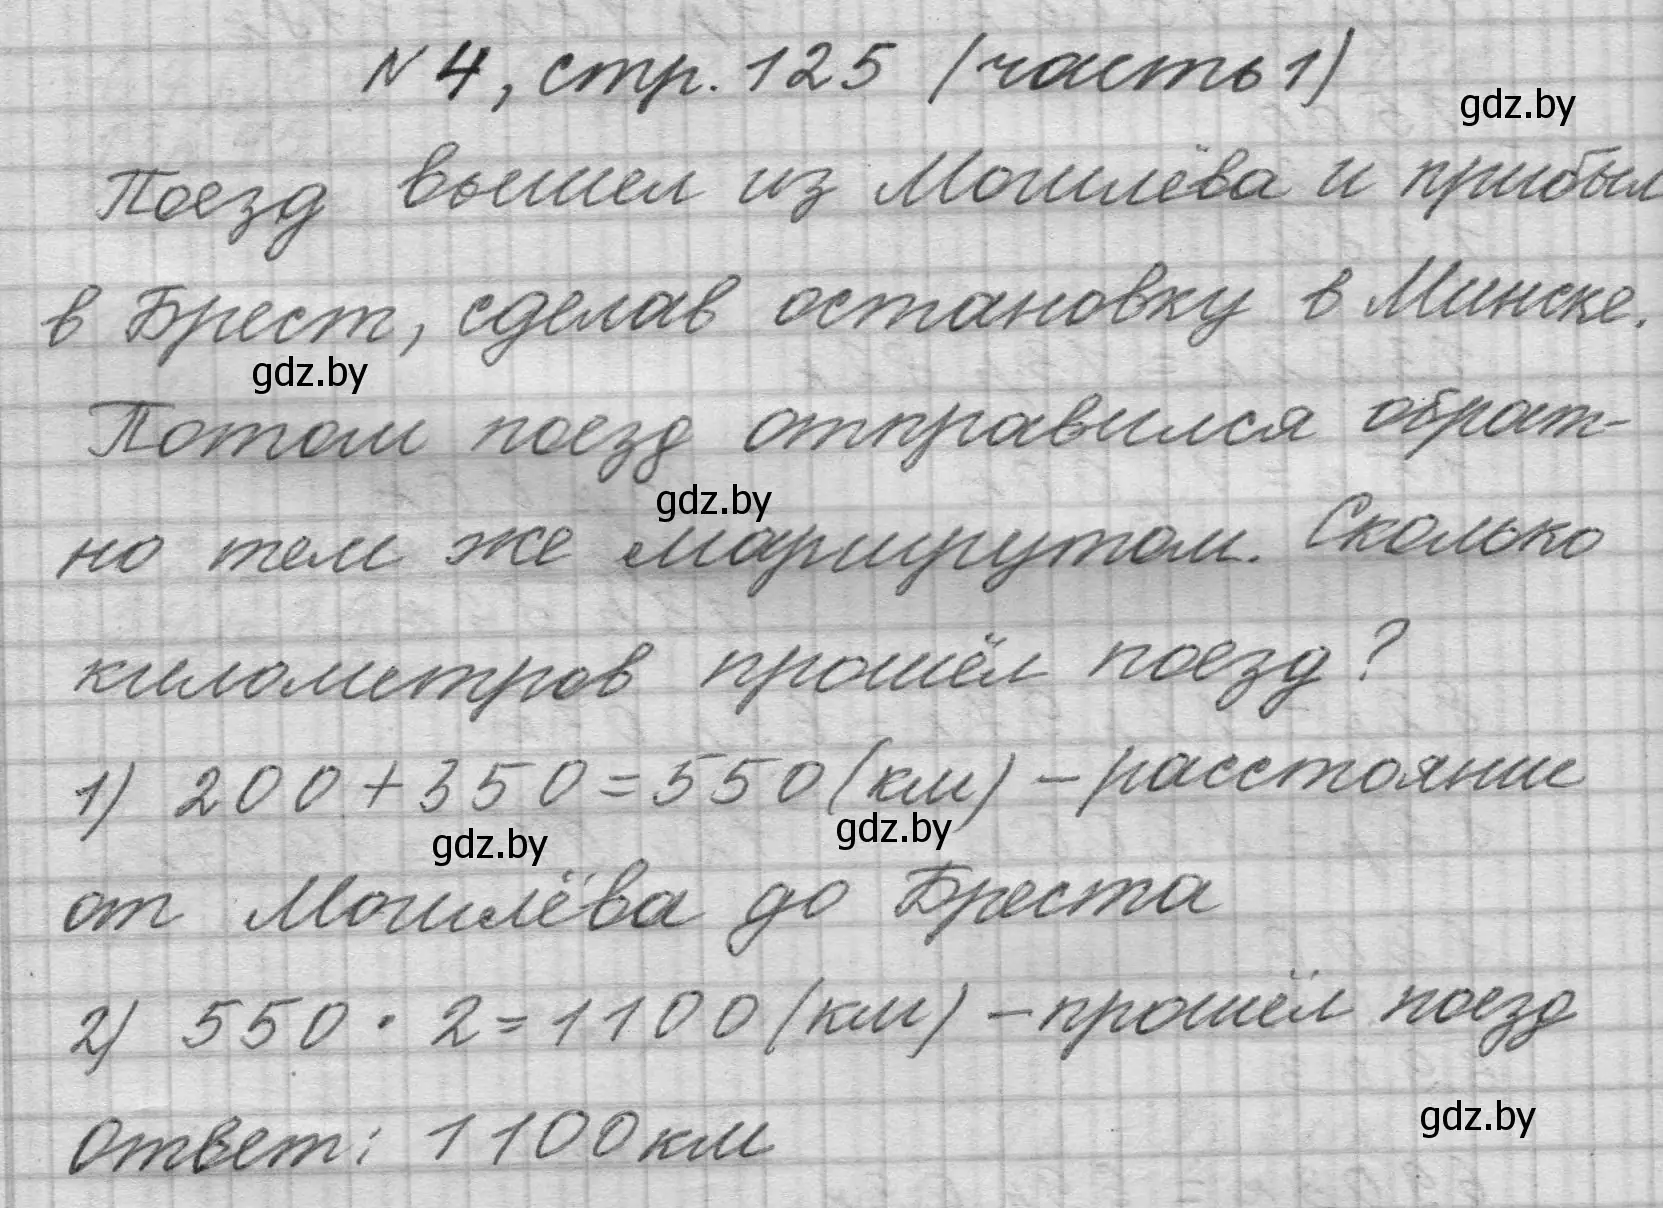 № 4, стр. 125 (часть 1)
gdz.by
Поезд вышел из Могилёва и прибыл
в Брест, сделав остановку в Минске.
gdz.by
Потом поезд отправился обрат-
gdz.by
но тем же маршрутом. Сколько
километров прошёл поезд?
1) 200+350=550(км) – расстояние
gdz.by gdz.by
от Могилёва до Бреста
2) 550 · 2=1100(км) – прошёл поезд
gdz.by
Ответ: 1100км